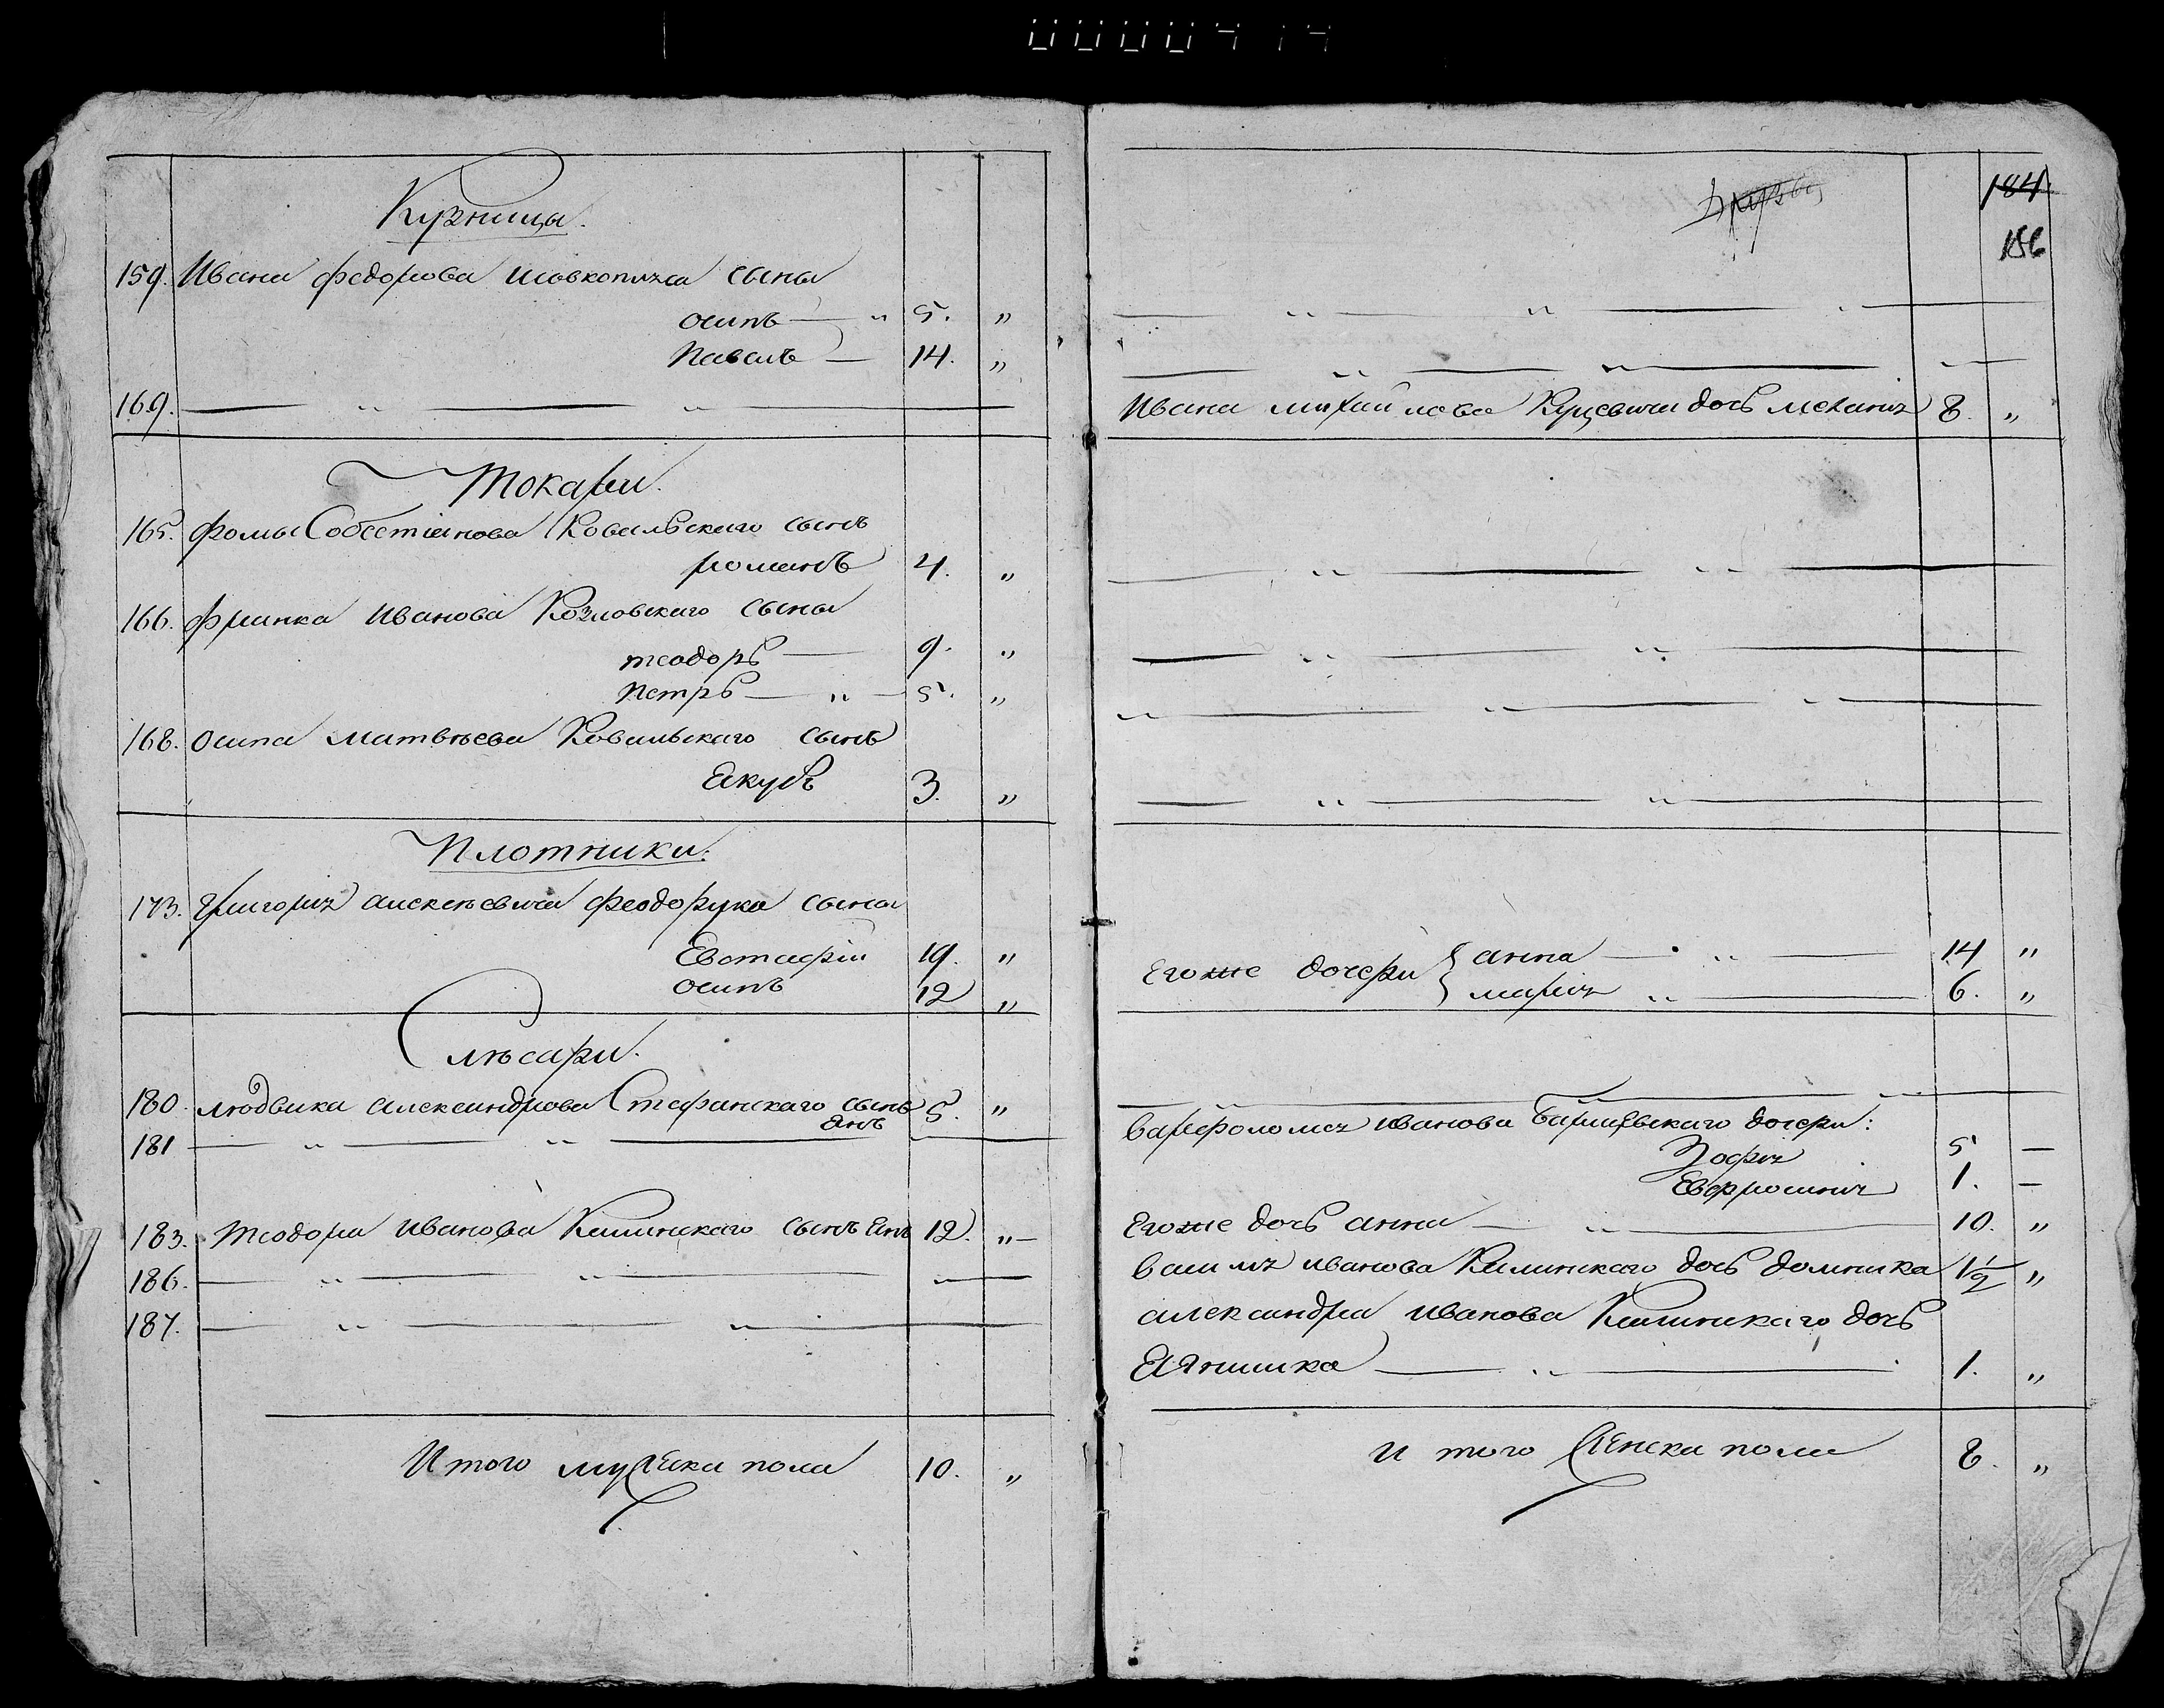 0000414
Кузнецы.
159. Ивана Федорова Шовкопляса сыны
осипъ — „ 5. „
Павелъ — 14. „
169. — „ — „ —
Токари.
165. Фомы Собестіанова Ковальскаго сынъ
романъ 4. „
166. Франка Иванова Козловскаго сыны
теодоръ — 9. „
Петръ — „ — 5. „
168. Осипа Матвѣева Ковальскаго сынъ
Якубъ 3. „
Плотники.
173. Григорія Алексѣевича Феодорука сыны
Евстафій 19. „
осипъ 12 „
Слѣсари.
180. Людвика Александрова Стефанскаго сынъ 5. „
Янъ
181 — „ — „ — —
183. Теодора Иванова Калинскаго сынъ Янъ 12. „ —
186. — „ — „ — —
187. — „ — „ —
Итого мужеска пола 10. „
184.
156
— „ — „ — „ —
— „ — „ — —
Ивана михайлова Куцевича дочь меланія 8. „
— „ — „ —
— „ — „ —
„ — „ — „ —
— „ — „ —
Егоже дочери { анна — „ — 14 „
марія „ — 6. „
— „ — „ —
Варфоломея иванова дочери:
Зофія 5 —
Евфросинія 1. —
Егоже дочь анна — „ — 10. „
василя иванова Калинскаго дочь домника 1/2 „
александра иванова Калинскаго дочь
— „ — 1. „
И того женска пола 8. „